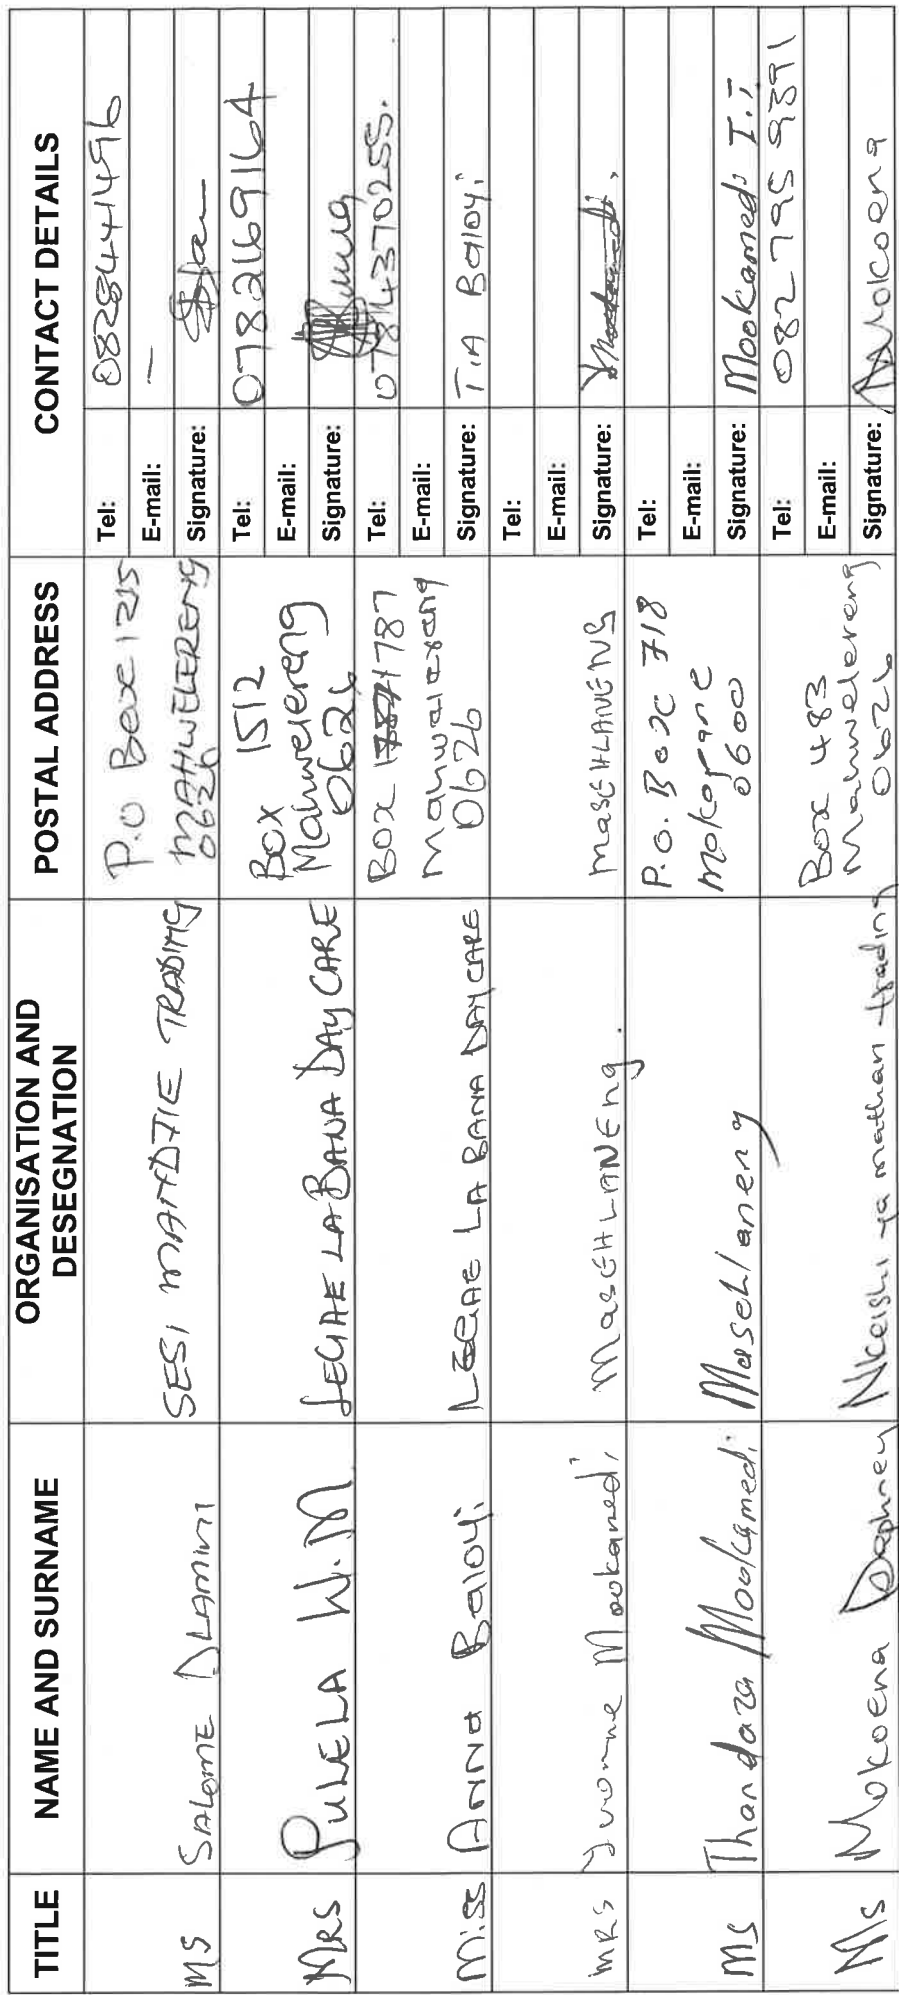 TITLE
NAME AND SURNAME
ORGANISATION AND
DESEGNATION
POSTAL ADDRESS
CONTACT DETAILS
MS
SALOME DLAMINI
SESI MANDJIE TRADING
P.O Box 1215
MAHWELERENG
0626
Tel: 0828441496
E-mail: —
Signature:
MRS
PULELA W.M
LEGAE LA BANA DAY CARE
BOX 1512
Mahwelereng
0626
Tel: 0782169164
E-mail:
Signature:
Miss
Anna Baloyi
LEGAE LA BANA DAY CARE
BOX 1787
Mahwalereng
0626
Tel: 07814370255.
E-mail:
Signature: T.A Baloyi
MRS
Yvonne Mookamedi
MASEHLANEng.
MASEHLANENG
Tel:
E-mail:
Signature:
Ms
Thandaza Mookamedi
Masehlaneng
P.O. Box 718
Mokopane
0600
Tel:
E-mail:
Signature: Mookamedi T.T
Ms
Mokoena Daphney
Nkeishi ya mathan trading
Box 483
Mahwelereng
0626
Tel: 082 795 9391
E-mail:
Signature: Mokoena